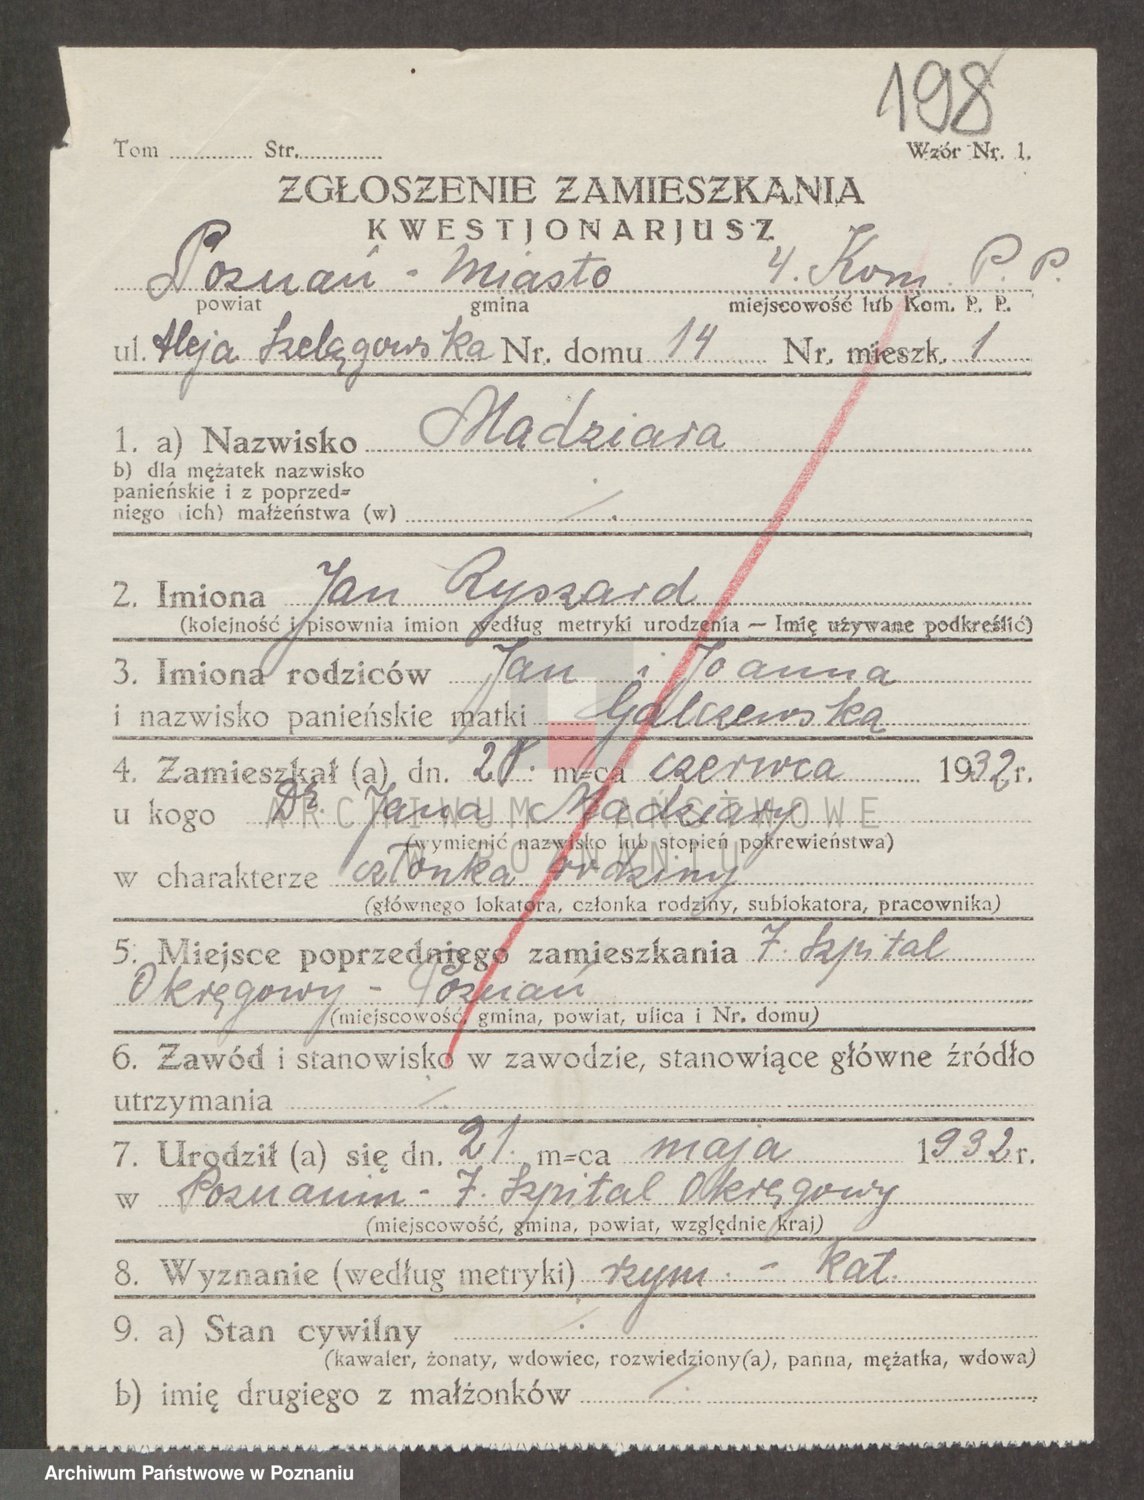 198
Tom ............ Str. ............ Wzór Nr. 1.
ZGŁOSZENIE ZAMIESZKANIA
KWESTJONARJUSZ
Poznań - Miasto 4. Kom. P. P.
powiat gmina miejscowość lub Kom. P. P.
ul. Aleja Szelągowska Nr. domu 14 Nr. mieszk. 1
1. a) Nazwisko Madziara
b) dla mężatek nazwisko
panieńskie i z poprzed=
niego (ich) małżeństwa (w) ./.
2. Imiona Jan Ryszard
(kolejność i pisownia imion według metryki urodzenia — Imię używane podkreślić)
3. Imiona rodziców Jan i Joanna
i nazwisko panieńskie matki Galczewska
4. Zamieszkał (a) dn. 28. m=ca czerwca 1932 r.
u kogo Dr. Jana Madziary
(wymienić nazwisko lub stopień pokrewieństwa)
w charakterze członka rodziny
(głównego lokatora, członka rodziny, sublokatora, pracownika)
5. Miejsce poprzedniego zamieszkania 7. Szpital
Okręgowy - Poznań
(miejscowość, gmina, powiat, ulica i Nr. domu)
6. Zawód i stanowisko w zawodzie, stanowiące główne źródło
utrzymania ./.
7. Urodził (a) się dn. 21. m=ca maja 1932 r.
w Poznaniu - 7. Szpital Okręgowy
(miejscowość, gmina, powiat, względnie kraj)
8. Wyznanie (według metryki) rzym. - kat.
9. a) Stan cywilny ./.
(kawaler, żonaty, wdowiec, rozwiedziony(a), panna, mężatka, wdowa)
b) imię drugiego z małżonków ./.
ARCHIWUM PAŃSTWOWE
W POZNANIU
Archiwum Państwowe w Poznaniu